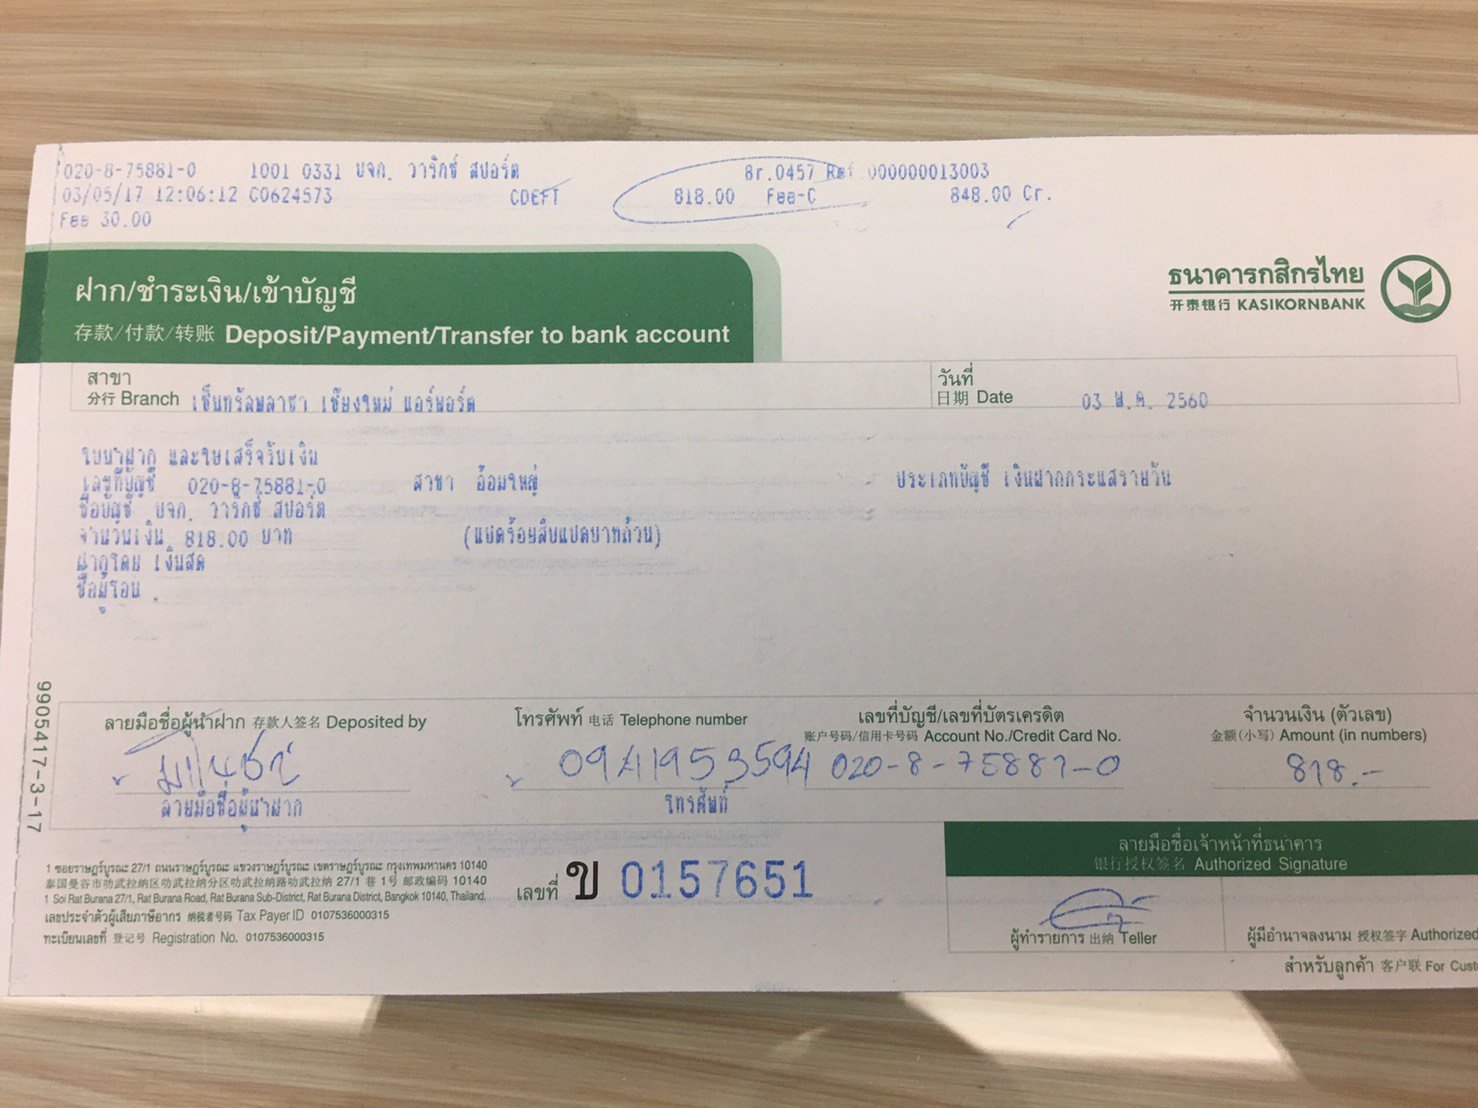 020-8-75881-0 1001 0331 บจก. วาริกซ์ สปอร์ต Br.0457 Ref 000000013003
03/05/17 12:06:12 C0624573 CDEFT 818.00 Fee-C 848.00 Cr.
Fee 30.00
ฝาก/ชำระเงิน/เข้าบัญชี
存款/付款/转账 Deposit/Payment/Transfer to bank account
ธนาคารกสิกรไทย
开泰银行 KASIKORNBANK
สาขา
分行 Branch เซ็นทรัลพลาซา เชียงใหม่ แอร์พอร์ต
วันที่
日期 Date 03 พ.ค. 2560
ใบนำฝาก และใบเสร็จรับเงิน
เลขที่บัญชี 020-8-75881-0 สาขา อ้อมใหญ่ ประเภทบัญชี เงินฝากกระแสรายวัน
ชื่อบัญชี บจก. วาริกซ์ สปอร์ต
จำนวนเงิน 818.00 บาท (แปดร้อยสิบแปดบาทถ้วน)
ฝากโดย เงินสด
ชื่อผู้โอน .
9905417-3-17
ลายมือชื่อผู้นำฝาก 存款人签名 Deposited by
โทรศัพท์ 电话 Telephone number
เลขที่บัญชี/เลขที่บัตรเครดิต
账户号码/信用卡号码 Account No./Credit Card No.
จำนวนเงิน (ตัวเลข)
金额(小写) Amount (in numbers)
0941953594 020-8-75881-0 818.-
ลายมือชื่อผู้นำฝาก โทรศัพท์
1 ซอยราษฎร์บูรณะ 27/1 ถนนราษฎร์บูรณะ แขวงราษฎร์บูรณะ เขตราษฎร์บูรณะ กรุงเทพมหานคร 10140
泰国曼谷市叻武拉纳区叻武拉纳分区叻武拉纳路叻武拉纳 27/1 巷 1号 邮政编码 10140
1 Soi Rat Burana 27/1, Rat Burana Road, Rat Burana Sub-District, Rat Burana District, Bangkok 10140, Thailand.
เลขประจำตัวผู้เสียภาษีอากร 纳税者号码 Tax Payer ID 0107536000315
ทะเบียนเลขที่ 登记号 Registration No. 0107536000315
เลขที่ ข 0157651
ลายมือชื่อเจ้าหน้าที่ธนาคาร
银行授权签名 Authorized Signature
ผู้ทำรายการ 出纳 Teller
ผู้มีอำนาจลงนาม 授权签字 Authorized
สำหรับลูกค้า 客户联 For Cust